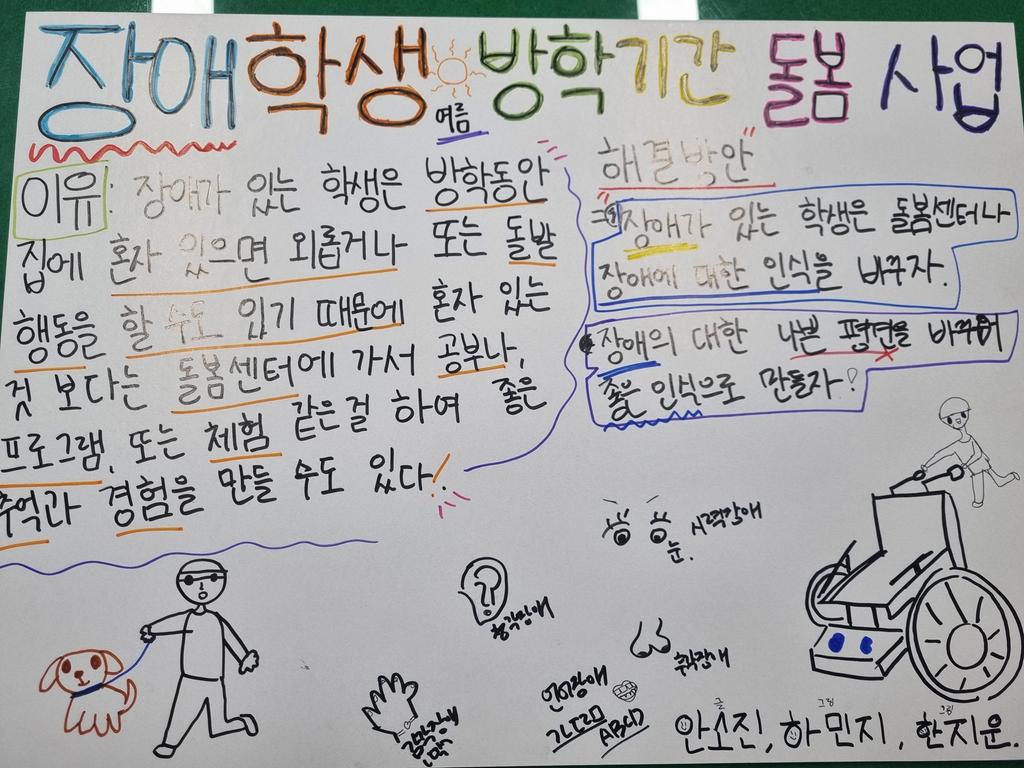 장애학생 방학기간 돌봄 사업
여름
이유: 장애가 있는 학생은 방학동안
집에 혼자 있으면 외롭거나 또는 돌발
행동을 할 수도 있기 때문에 혼자 있는
것 보다는 돌봄센터에 가서 공부나,
프로그램, 또는 체험 같은걸 하여 좋은
추억과 경험을 만들 수도 있다!
"해결방안"
⇒① 장애가 있는 학생은 돌봄센터나
장애에 대한 인식을 바꾸자.
장애의 대한 나쁜 평면을 바꾸어
좋은 인식으로 만들자?
시력장애
눈.
청각장애
후각장애
언어장애
가나다라
ABCD
글 그림 그림
안소진, 하민지, 한지운.